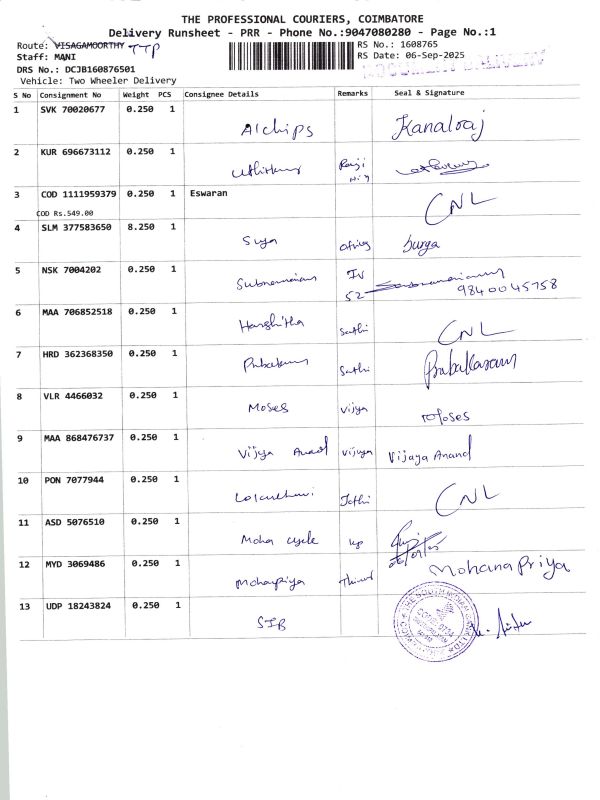 THE PROFESSIONAL COURIERS, COIMBATORE
Delivery Runsheet - PRR - Phone No.:9047080280 - Page No.:1
Route: VISAGAMOORTHY TTP
RS No.: 1608765
Staff: MANI
RS Date: 06-Sep-2025
DRS No.: DCJB160876501
Vehicle: Two Wheeler Delivery
S No Consignment No Weight PCS Consignee Details Remarks Seal & Signature
1 SVK 70020677 0.250 1 Alchips Kanalraj
2 KUR 696673112 0.250 1
3 COD 1111959379 0.250 1 Eswaran CNL
COD Rs.549.00
4 SLM 377583650 8.250 1 Surya
5 NSK 7004202 0.250 1 52 9840045758
6 MAA 706852518 0.250 1 Harshitha Sathi CNL
7 HRD 362368350 0.250 1 Sathi Prabakaran
8 VLR 4466032 0.250 1 Moses Vijya Moses
9 MAA 868476737 0.250 1 Vijya Anand Vijaya Vijaya Anand
10 PON 7077944 0.250 1 Jothi CNL
11 ASD 5076510 0.250 1 Moha cycle kp
12 MYD 3069486 0.250 1 Mohanpriya Mohana Priya
13 UDP 18243824 0.250 1 SIB